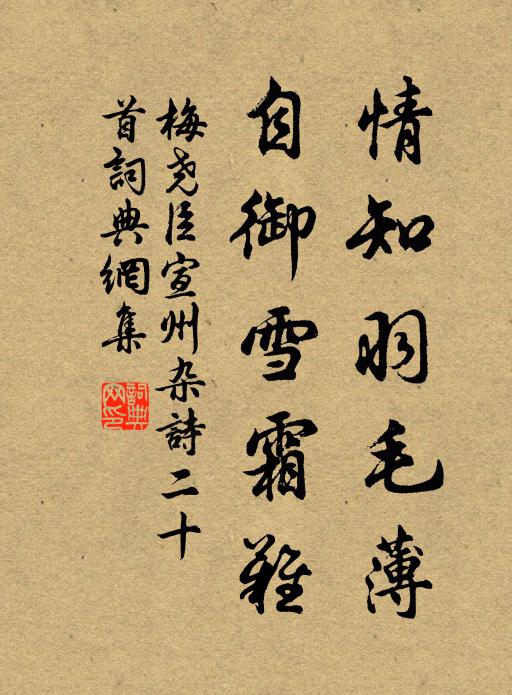 情知羽毛薄
自御雪霜難
梅尧臣宣州杂詩二十
首詞典網集
詞典網印